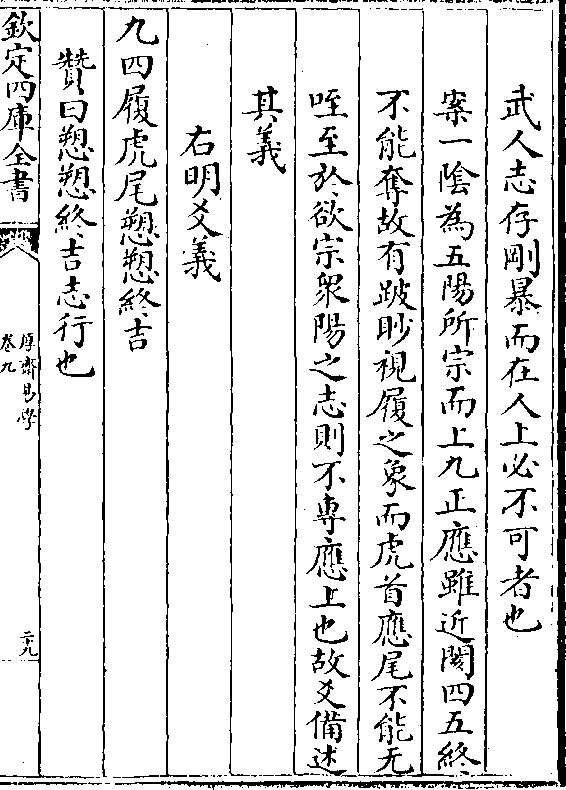 武人志存剛暴而在人上必不可者也
案一陰為五陽所宗而上九正應雖近閡四五終
不能奪故有跛眇視履之象而虎首應尾不能无
咥至於欲宗衆陽之志則不專應上也故爻備述
其義
右明爻義
九四履虎尾愬愬終吉
贊曰愬愬終吉志行也
欽定四庫全書
厚齋易學
卷九
二十九